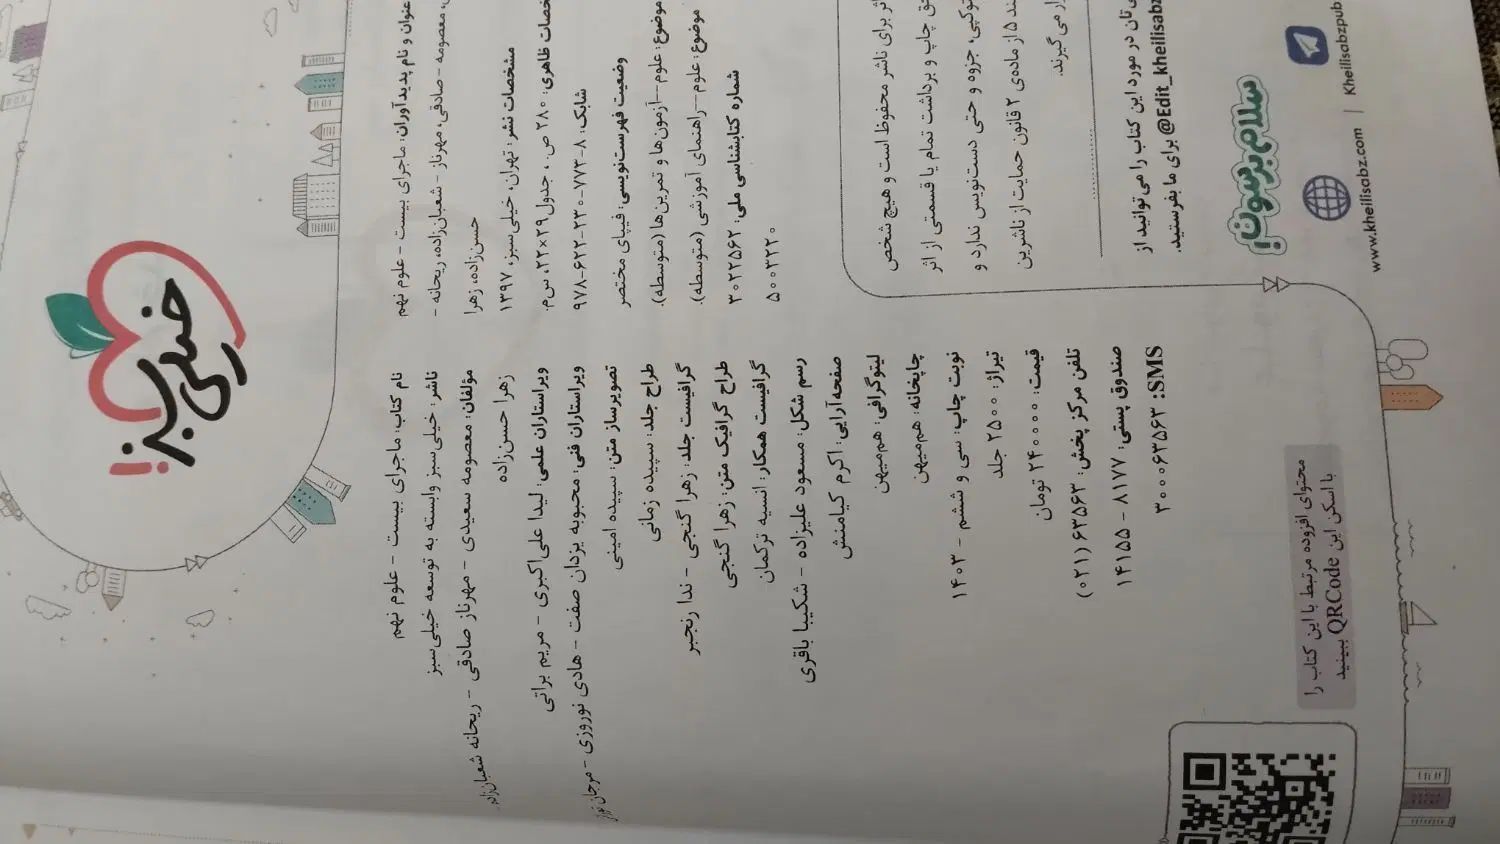 خیلی سبز!
نام کتاب: ماجرای بیست - علوم نهم
ناشر: خیلی‌سبز وابسته به توسعه خیلی‌سبز
مؤلفان: معصومه سعیدی - مهرناز صادقی - ریحانه شعبان‌زاده
زهرا حسن‌زاده
ویراستاران علمی: لیدا علی‌اکبری - مریم براتی
ویراستاران فنی: محبوبه یزدان صفت - هادی نوروزی - مرجان
تصویرساز متن: سپیده امینی
طراح جلد: سپیده زمانی
گرافیست جلد: زهرا گنجی - ندا رنجبر
طراح گرافیک متن: زهرا گنجی
گرافیست همکار: انسیه ترکمان
رسم شکل: مسعود علیزاده - شکیبا باقری
صفحه‌آرایی: اکرم کیامنش
لیتوگرافی: هم‌میهن
چاپخانه: هم‌میهن
نوبت چاپ: سی و ششم - ۱۴۰۳
تیراژ: ۲۵۰۰ جلد
قیمت: ۲۴۰۰۰۰ تومان
تلفن مرکز پخش: ۶۳۵۶۳(۰۲۱)
صندوق پستی: ۸۱۷۷ - ۱۴۱۵۵
SMS: ۳۰۰۰۶۳۵۶۳
عنوان و نام پدیدآوران: ماجرای بیست - علوم نهم
معصومه - صادقی، مهرناز - شعبان‌زاده، ریحانه -
حسن‌زاده، زهرا
مشخصات نشر: تهران، خیلی‌سبز، ۱۳۹۷
خصات ظاهری: ۲۸۰ ص.، جدول ۲۹×۲۲، س‌م.
شابک: ۸-۷۷۳-۲۳۰-۶۲۲-۹۷۸
وضعیت فهرست‌نویسی: فیپای مختصر
موضوع: علوم--آزمون‌ها و تمرین‌ها (متوسطه).
موضوع: علوم--راهنمای آموزشی (متوسطه).
شماره کتابشناسی ملی: ۳۰۲۲۵۶۲
۵۰۰۳۲۲۰
ثر برای ناشر محفوظ است و هیچ شخص
حق چاپ و برداشت تمام یا قسمتی از اثر
توکپی، جزوه و حتی دست‌نویس ندارد و
ند ۵ از ماده‌ی ۲ قانون حمایت از ناشرین
ار می‌گیرند.
ی‌تان در مورد این کتاب را می‌توانید از
@Edit_kheilisabz برای ما بفرستید.
سلام برسون!
www.kheilisabz.com | Kheilisabzpub
محتوای افزوده مرتبط با این کتاب را
با اسکن این QRCode ببینید